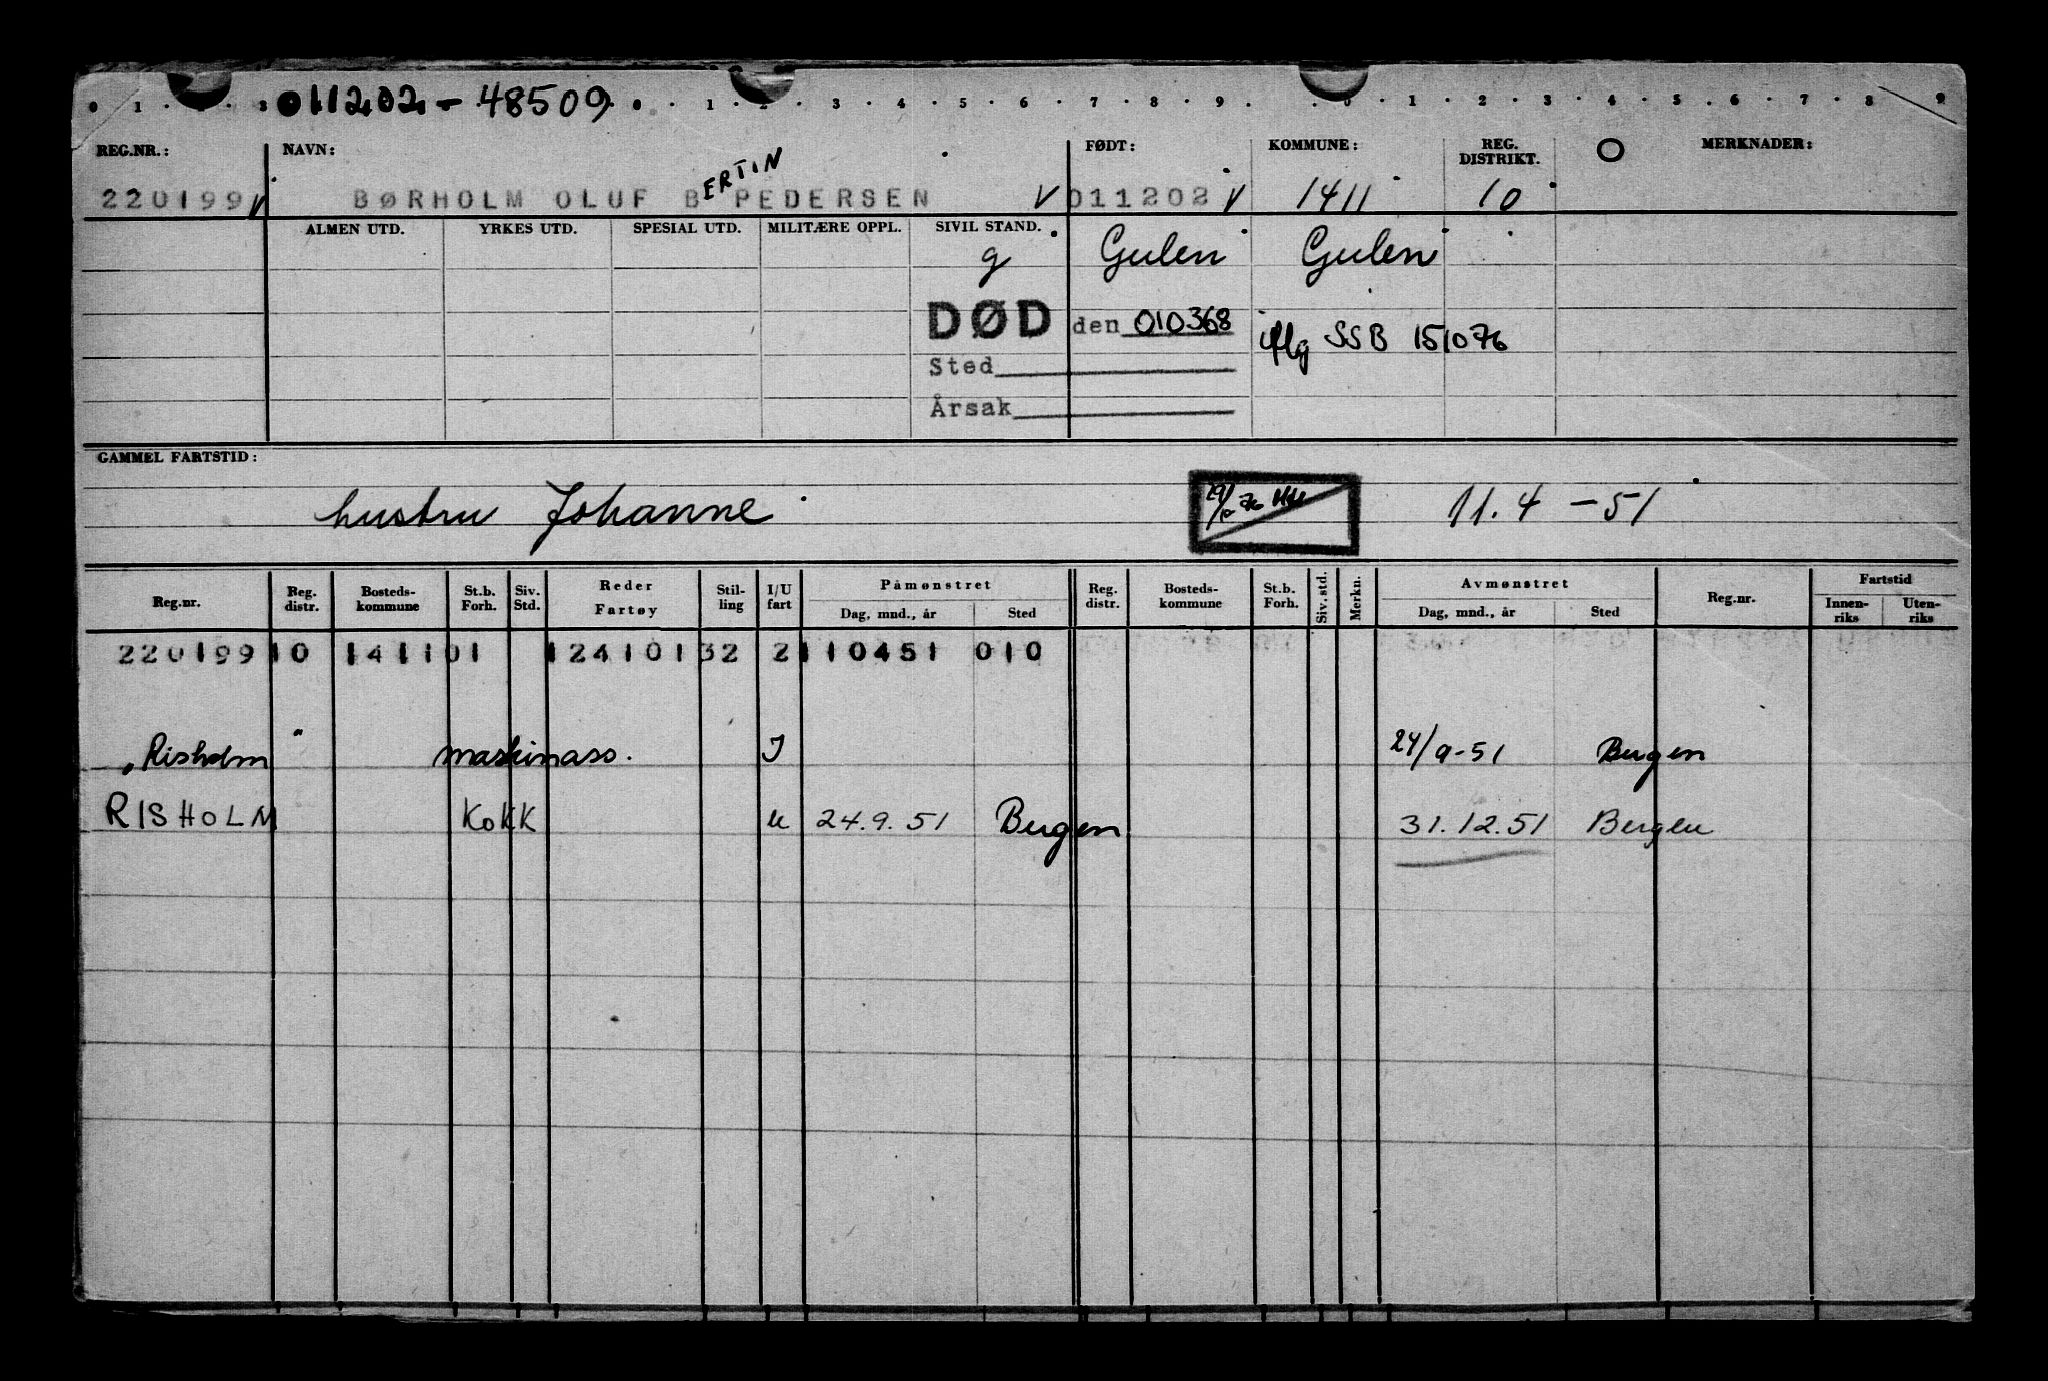 0 1 3 011202 - 48509 0 . 1 . 2 . 3 . 4 . 5 . 6 . 7 . 8 . 9 . . 0 . 1 . 2 . 3 . 4 . 5 . 6 . 7 . 8 9
REG.NR.: NAVN: FØDT: KOMMUNE: REG. DISTRIKT. O MERKNADER:
220199 V BØRHOLM OLUF BERTIN PEDERSEN V 011202 V 1411 10
ALMEN UTD. YRKES UTD. SPESIAL UTD. MILITÆRE OPPL. SIVIL STAND.
g Gulen Gulen
DØD den 010368 iflg SSB 151076
Sted
Årsak
GAMMEL FARTSTID:
hustru Johanne 11.4 - 51
Reg.nr. Reg. distr. Bosteds-kommune St.b. Forh. Siv. Std. Reder Fartøy Stil-ling I/U fart Påmønstret Dag, mnd., år Sted Reg. distr. Bosteds-kommune St.b. Forh. Siv. std. Merkn. Avmønstret Dag, mnd., år Sted Reg.nr. Fartstid Innen-riks Uten-riks
220199 10 1411 01 124101 32 2 110451 010
"Risholm" maskinass. I 24/9-51 Bergen
RISHOLM KOKK u 24.9.51 Bergen 31.12.51 Bergen